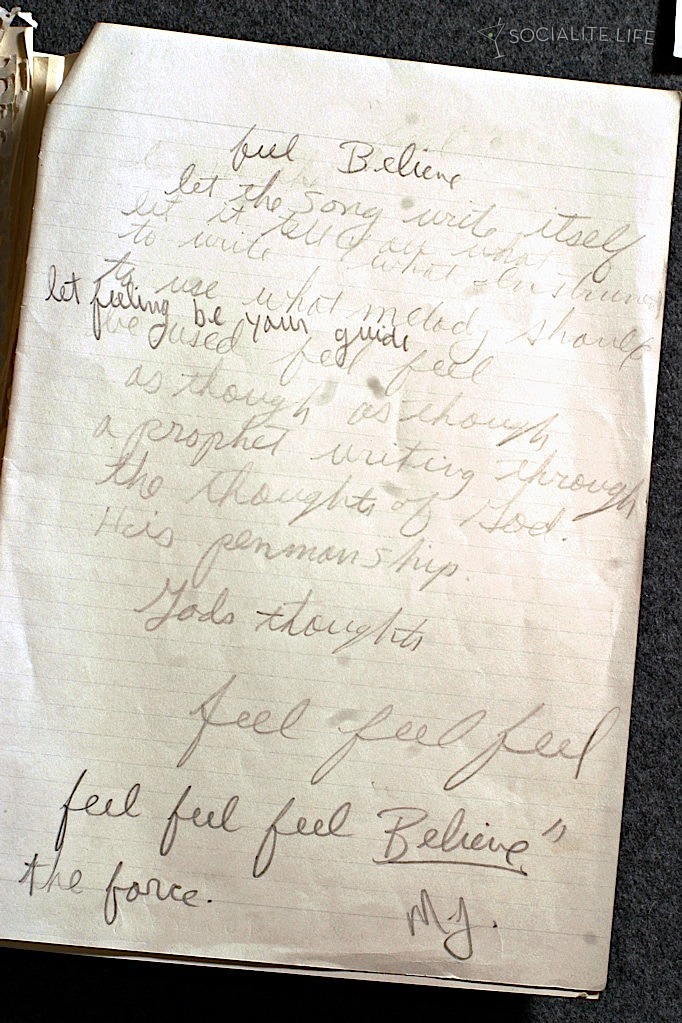 SOCIALITE.LIFE
feel Believe
let the song write itself
let it tell you what
to write what instruments
to use what melody should
let feeling be your guide
be used feel feel
as though as though
a prophet writing through
the thoughts of God.
His penmanship.
Gods thoughts
feel feel feel
feel feel feel Believe"
the force.
M.J.